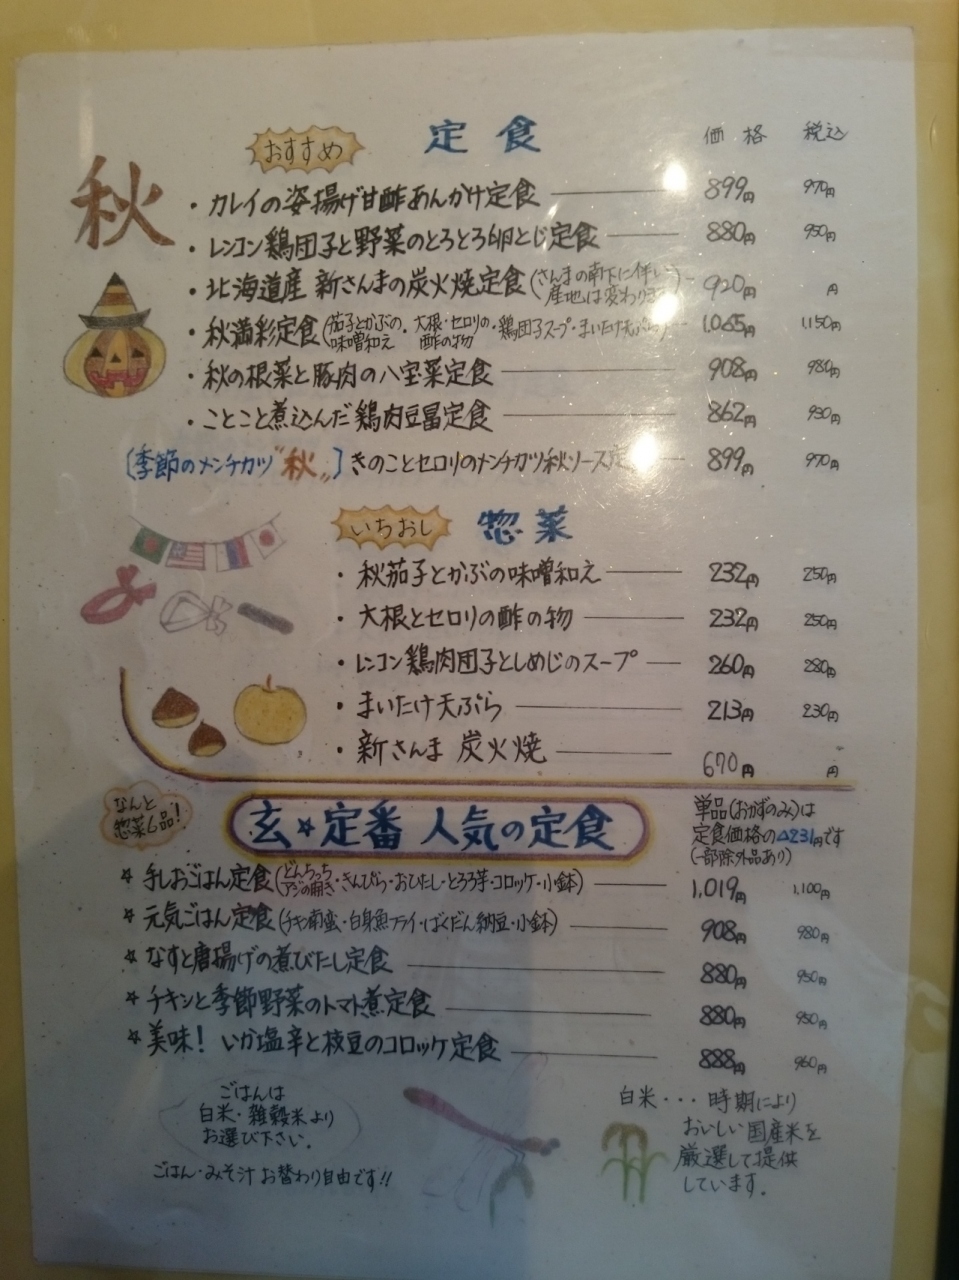 秋
おすすめ 定食 価格 税込
・カレイの姿揚げ甘酢あんかけ定食 899円 970円
・レンコン鶏団子と野菜のとろとろ卵とじ定食 880円 950円
・北海道産 新さんまの炭火焼定食(さんまの南下に伴い 産地は変わります) 920円 円
・秋満彩定食(茄子とかぶの味噌和え・大根・セロリの酢の物・鶏団子スープ・まいたけ天ぷら) 1,065円 1,150円
・秋の根菜と豚肉の八宝菜定食 908円 980円
・ことこと煮込んだ鶏肉豆冨定食 862円 930円
〔季節のメンチカツ"秋"〕きのことセロリのメンチカツ秋ソース定 899円 970円
いちおし 惣菜
・秋茄子とかぶの味噌和え 232円 250円
・大根とセロリの酢の物 232円 250円
・レンコン鶏肉団子としめじのスープ 260円 280円
・まいたけ天ぷら 213円 230円
・新さんま 炭火焼 670円 円
なんと
惣菜6品!
玄☆定番 人気の定食
単品(おかずのみ)は
定食価格の△231円です
(一部除外品あり)
☆手しおごはん定食(どんちっちアジの開き・きんぴら・おひたし・とろろ芋・コロッケ・小鉢) 1,019円 1,100円
☆元気ごはん定食(チキン南蛮・白身魚フライ・ばくだん納豆・小鉢) 908円 980円
☆なすと唐揚げの煮びたし定食 880円 950円
☆チキンと季節野菜のトマト煮定食 880円 950円
☆美味! いか塩辛と枝豆のコロッケ定食 888円 960円
ごはんは
白米・雑穀米より
お選び下さい.
ごはん・みそ汁 お替わり自由です!!
白米・・・時期により
おいしい国産米を
厳選して提供
しています.